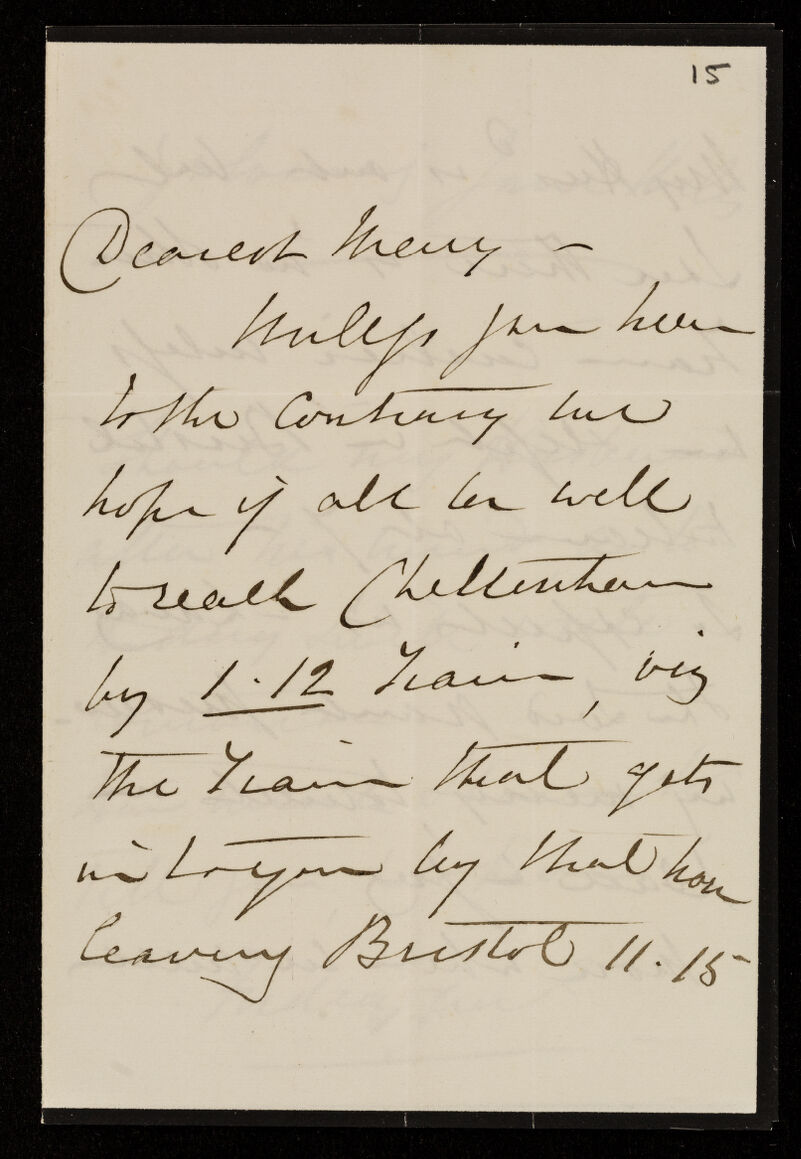 15
Dearest Mary –
Unless you hear
to the Contrary we
hope if all be well
to reach Cheltenham
by 1.12 Train, viz
the Train that gets
in to you by that hour
leaving Bristol 11.15